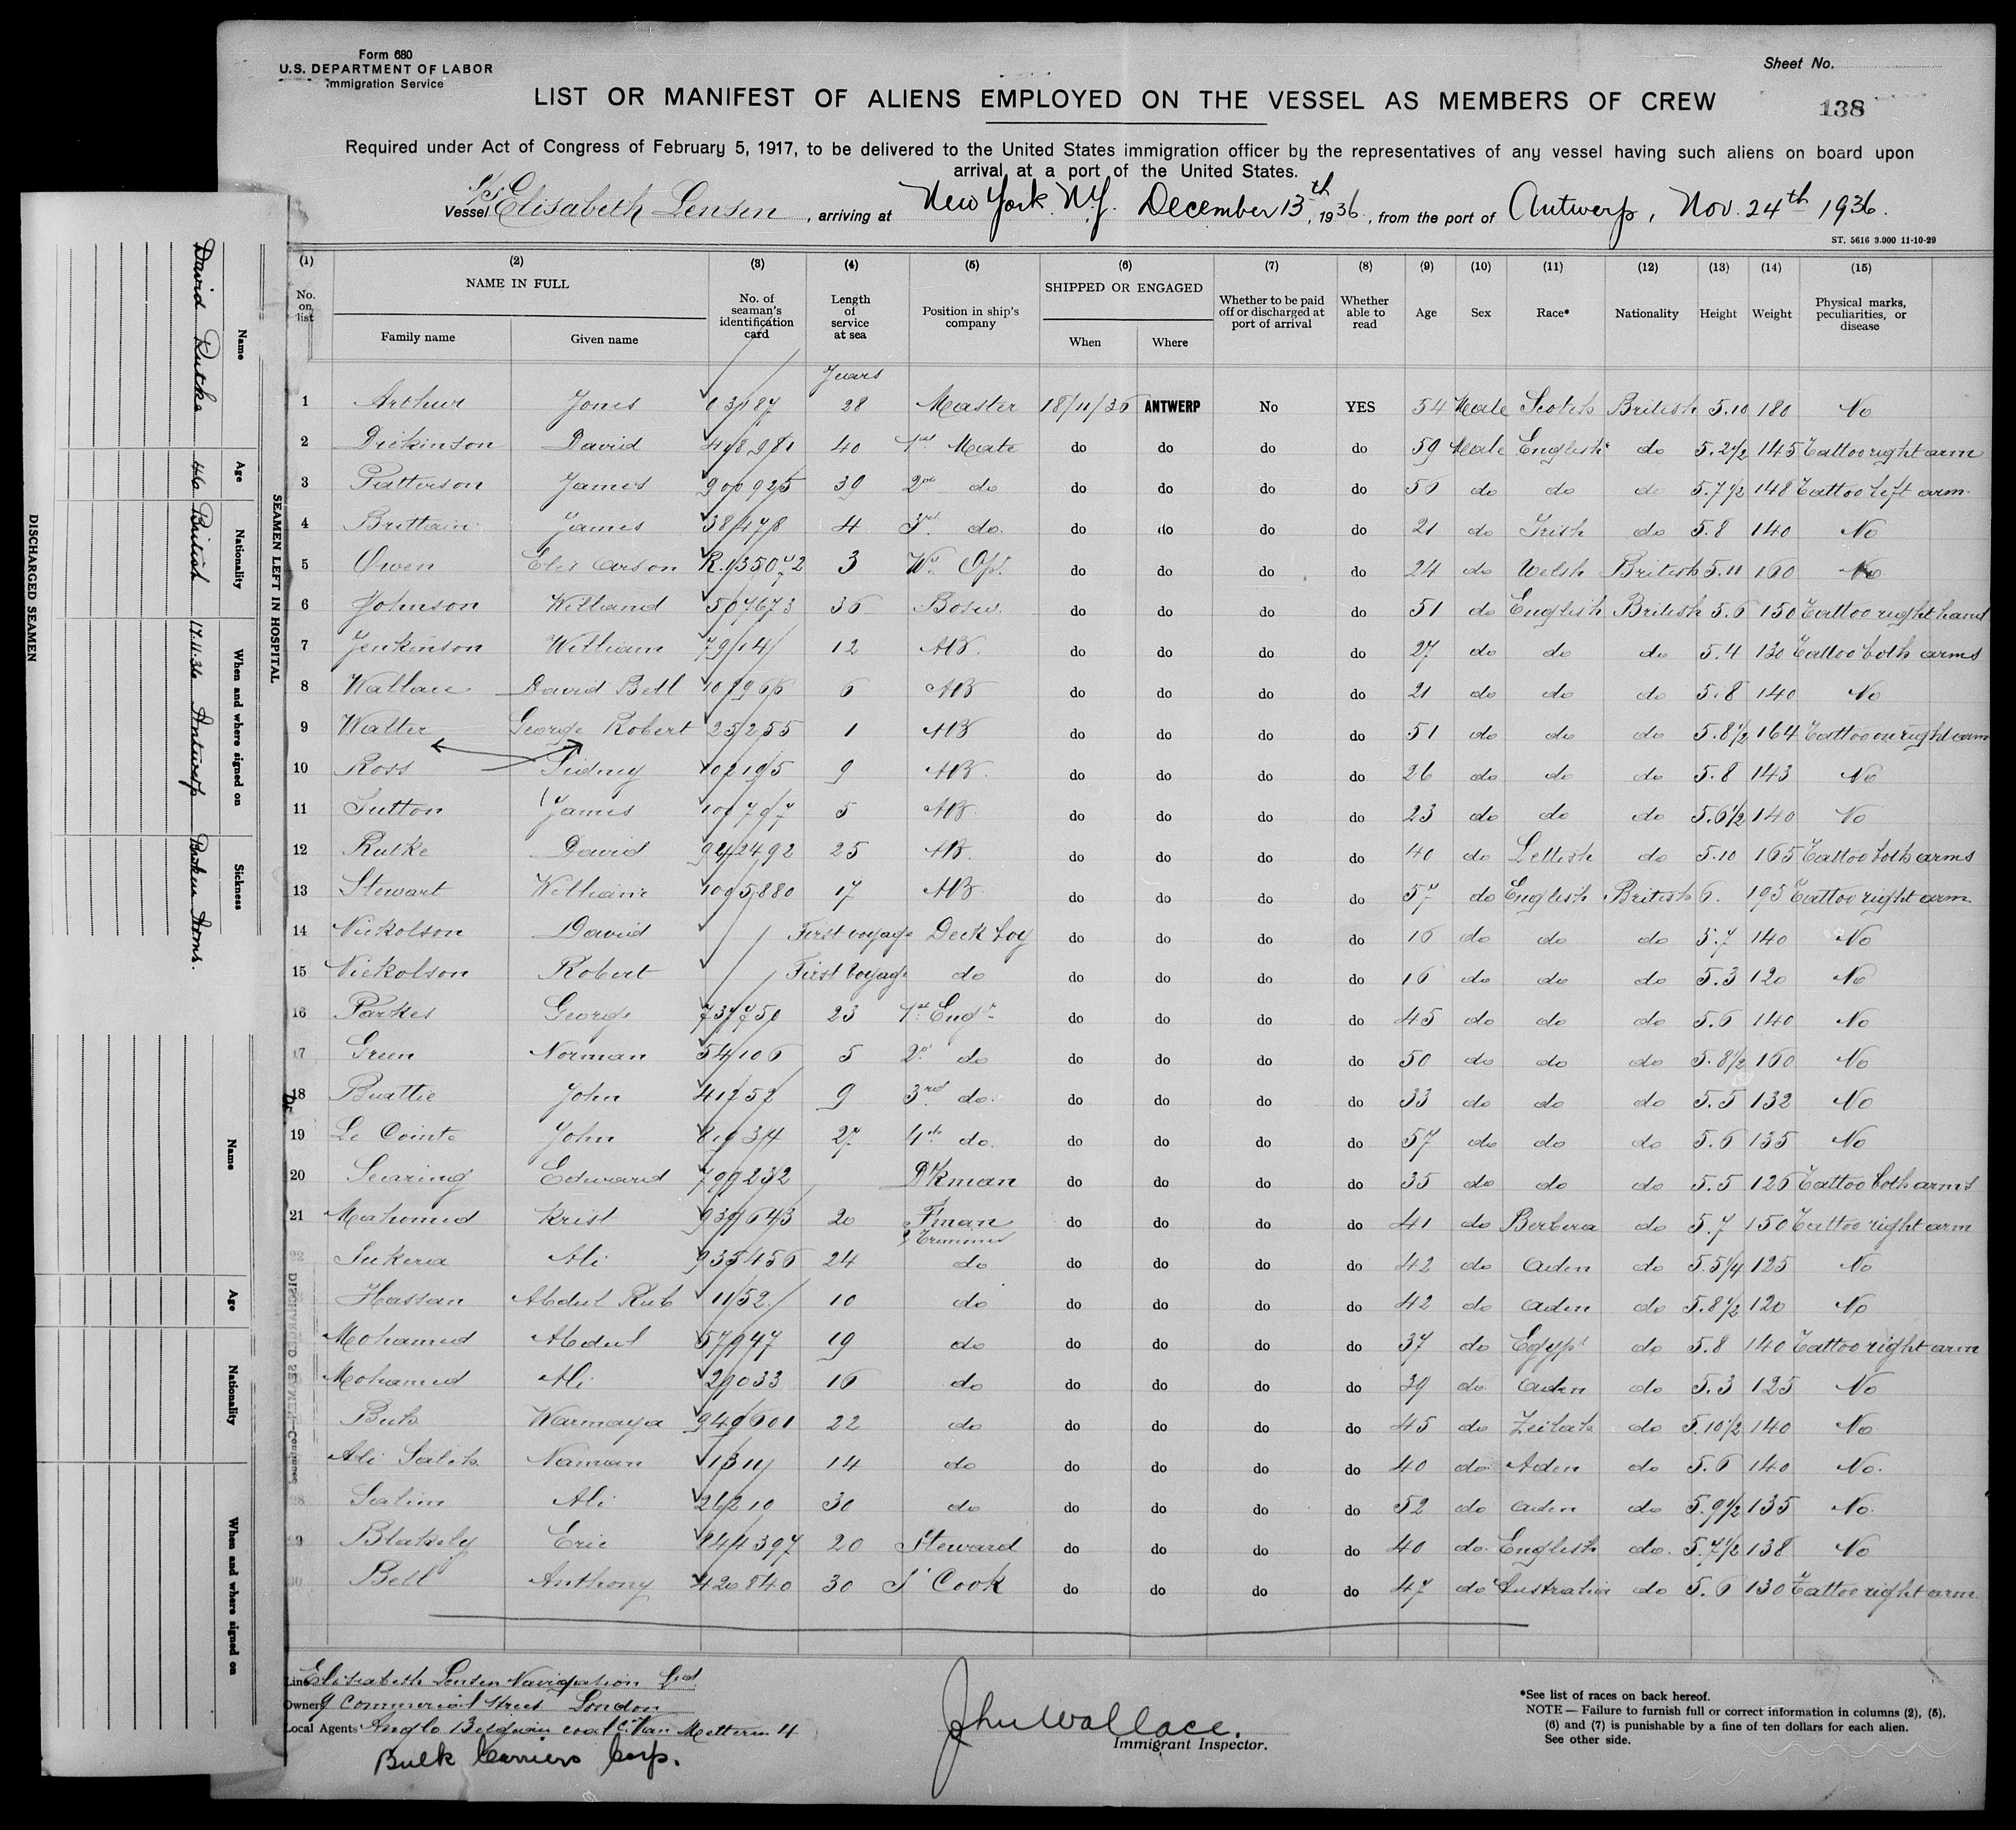 Form 680
U.S. DEPARTMENT OF LABOR
Immigration Service
Sheet No.
138
LIST OR MANIFEST OF ALIENS EMPLOYED ON THE VESSEL AS MEMBERS OF CREW
Required under Act of Congress of February 5, 1917, to be delivered to the United States immigration officer by the representatives of any vessel having such aliens on board upon
arrival at a port of the United States.
Vessel S/S Elisabeth Lensen, arriving at New York. N.Y. December 13th, 1936, from the port of Antwerp, Nov. 24th 1936.
ST. 5616 3.000 11-10-29
(1) (2) (3) (4) (5) (6) (7) (8) (9) (10) (11) (12) (13) (14) (15)
No. on list NAME IN FULL Family name Given name No. of seaman's identification card Length of service at sea Position in ship's company SHIPPED OR ENGAGED When Where Whether to be paid off or discharged at port of arrival Whether able to read Age Sex Race* Nationality Height Weight Physical marks, peculiarities, or disease
Years
1 Arthur Jones 28 Master 18/11/36 ANTWERP No YES 54 Male Scotch British 5.10 180 No
2 Dickinson David 40 1st Mate do do do do 59 Male English do 5.2½ 145 Tattoo right arm
3 Patterson James 900925 39 2nd do do do do do 50 do do do 5.7½ 148 Tattoo left arm
4 Brittain James 38478 4 3rd do. do do do do 21 do Irish do 5.8 140 No
5 Owen 3 do do do do 24 do Welsh British 5.11 160 No
6 Johnson 507673 36 Bosw. do do do do 51 do English British 5.6 150 Tattoo right hand
7 Jenkinson William 12 AB. do do do do 27 do do do 5.4 130 Tattoo both arms
8 Wallace David Bell 101966 6 AB do do do do 21 do do do 5.8 140 No
9 Walter George Robert 25255 1 AB do do do do 51 do do do 5.8½ 164 Tattoo on right arm
10 Ross Sidney 102195 9 AB. do do do do 26 do do do 5.8 143 No
11 Sutton James 5 AB. do do do do 23 do do do 5.6½ 140 No
12 Rutke David 942492 25 AB. do do do do 40 do Lettish do 5.10 165 Tattoo both arms
13 Stewart William 1005880 17 AB. do do do do 57 do English British 6. 195 Tattoo right arm
14 Nickolson David First voyage Deck boy do do do do 16 do do do 5.7 140 No
15 Nickolson Robert First voyage do do do do do 16 do do do 5.3 120 No
16 Parkes George 737750 23 1st Engr do do do do 45 do do do 5.6 140 No
17 Green Norman 54106 5 2nd do do do do do 50 do do do 5.8½ 160 No
18 Beattie John 9 3rd do. do do do do 33 do do do 5.5 132 No
19 Le Cointe John 27 4th do. do do do do 57 do do do 5.6 135 No
20 Searing Edward 799232 Dkman do do do do 35 do do do 5.5 126 Tattoo both arms
21 Mahomed Krist 939643 20 Fman & Trimmer do do do do 41 do Berbera do 5.7 150 Tattoo right arm
22 Sukeria Ali 935456 24 do do do do do 42 do Aden do 5.5¼ 125 No
Hassan Abdul Rub 1152 10 do do do do do 42 do Aden do 5.8½ 120 No
Mohamed Abdul 57947 19 do do do do do 37 do Egypt do 5.8 140 Tattoo right arm
Mohamed Ali 29033 16 do do do do do 39 do Aden do 5.3 125 No
Warmaya 949601 22 do do do do do 45 do Zeilah do 5.10½ 140 No
Ali Saleh Naman 14 do do do do do 40 do Aden do 5.6 140 No.
28 Salim Ali 26210 30 do do do do do 52 do Aden do 5.9½ 135 No.
29 Blakely Eric 844397 20 Steward do do do do 40 do. English do. 5.7½ 138 No
30 Bell Anthony 420840 30 S. Cook do do do do 47 do Australia do 5.6 130 Tattoo right arm
Line Elisabeth Lensen Navigation Ltd.
Owner 9 Commercial Street London
Local Agents Anglo Belgian coal Co Van Metteren 4
Bulk Carriers Corp.
John Wallace.
Immigrant Inspector.
*See list of races on back hereof.
NOTE — Failure to furnish full or correct information in columns (2), (5),
(6) and (7) is punishable by a fine of ten dollars for each alien.
See other side.
DISCHARGED SEAMEN
SEAMEN LEFT IN HOSPITAL
Name Age Nationality When and where signed on Sickness
David Rutke 46 British 17.11.36 Antwerp Broken Arms.
Name Age Nationality When and where signed on
DISCHARGED SEAMEN—Continued